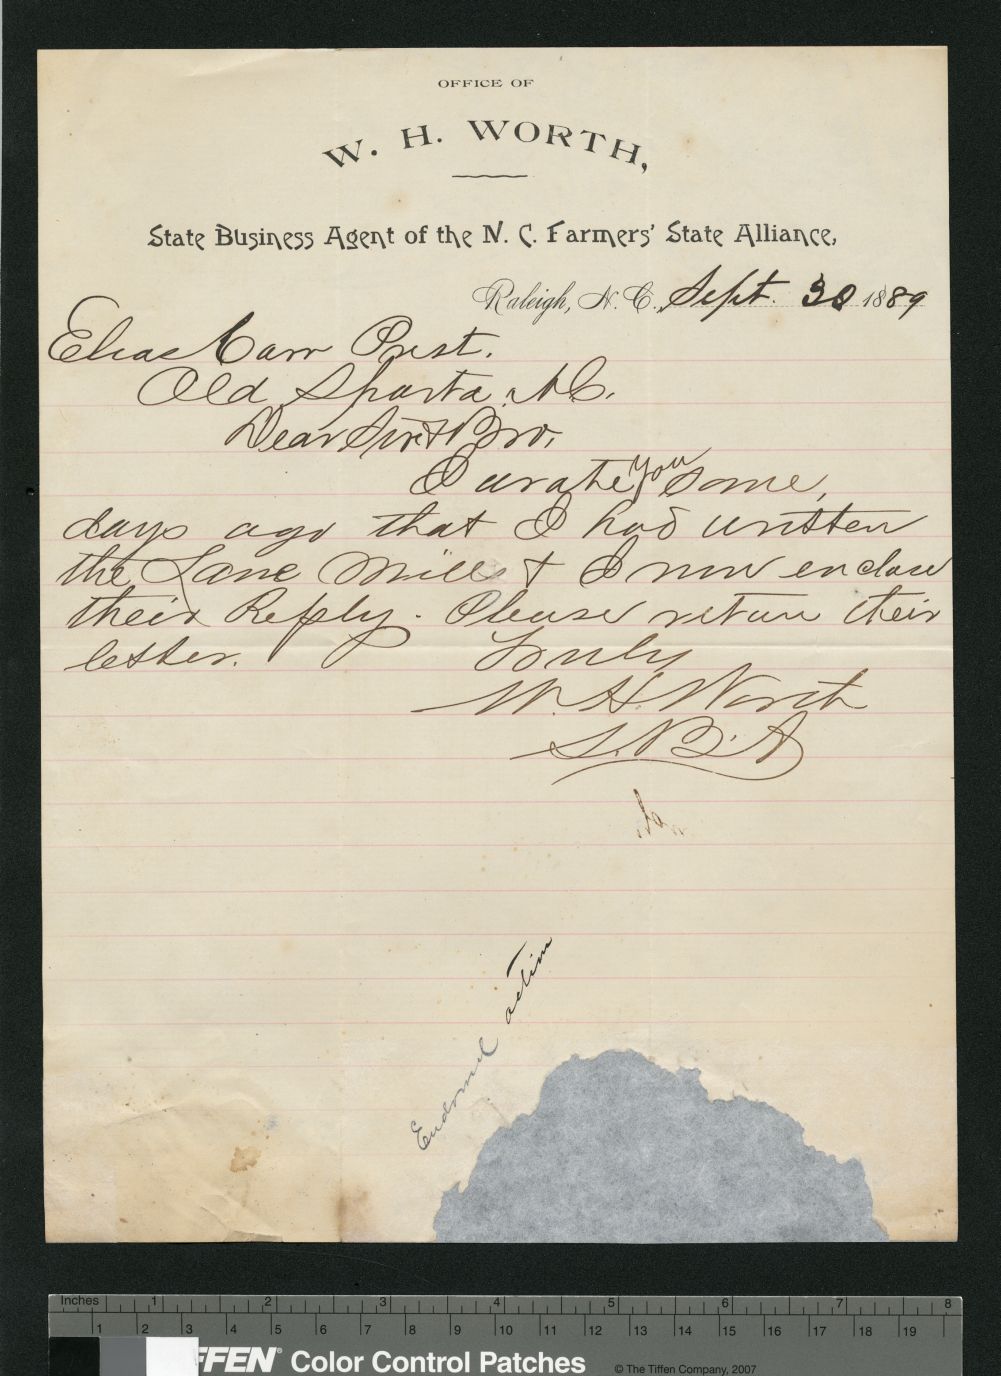 OFFICE OF
W. H. WORTH,
State Business Agent of the N. C. Farmers' State Alliance,
Raleigh, N. C., Sept. 30 1889
Elias Carr Prest.
Old Sparta N.C.
Dear Sir & Bro.
I wrote you some
days ago that I had written
the Lane Mills & I now enclose
their Reply. Please return their
letter. Truly
W. H. Worth
S. B. A
action
Inches 1 2 3 4 5 6 7 8
1 2 3 4 5 6 7 8 9 10 11 12 13 14 15 16 17 18 19
FFEN® Color Control Patches © The Tiffen Company, 2007